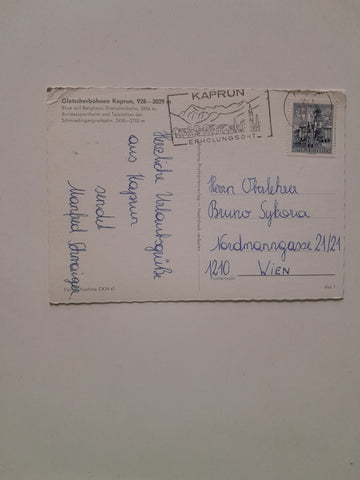 Gletscherbahnen Kaprun, 928—3029 m
Blick auf Berghaus Gletscherbahn, 2456 m,
Bundessportheim und Talstation der
Schmiedingergratbahn, 2450—2755 m
KAPRUN
ERHOLUNGSORT
Herzliche Urlaubsgrüße
aus Kaprun
sendet
Manfred
Herrn
Bruno Sykora
Nordmanngasse 21/21
1210 Wien